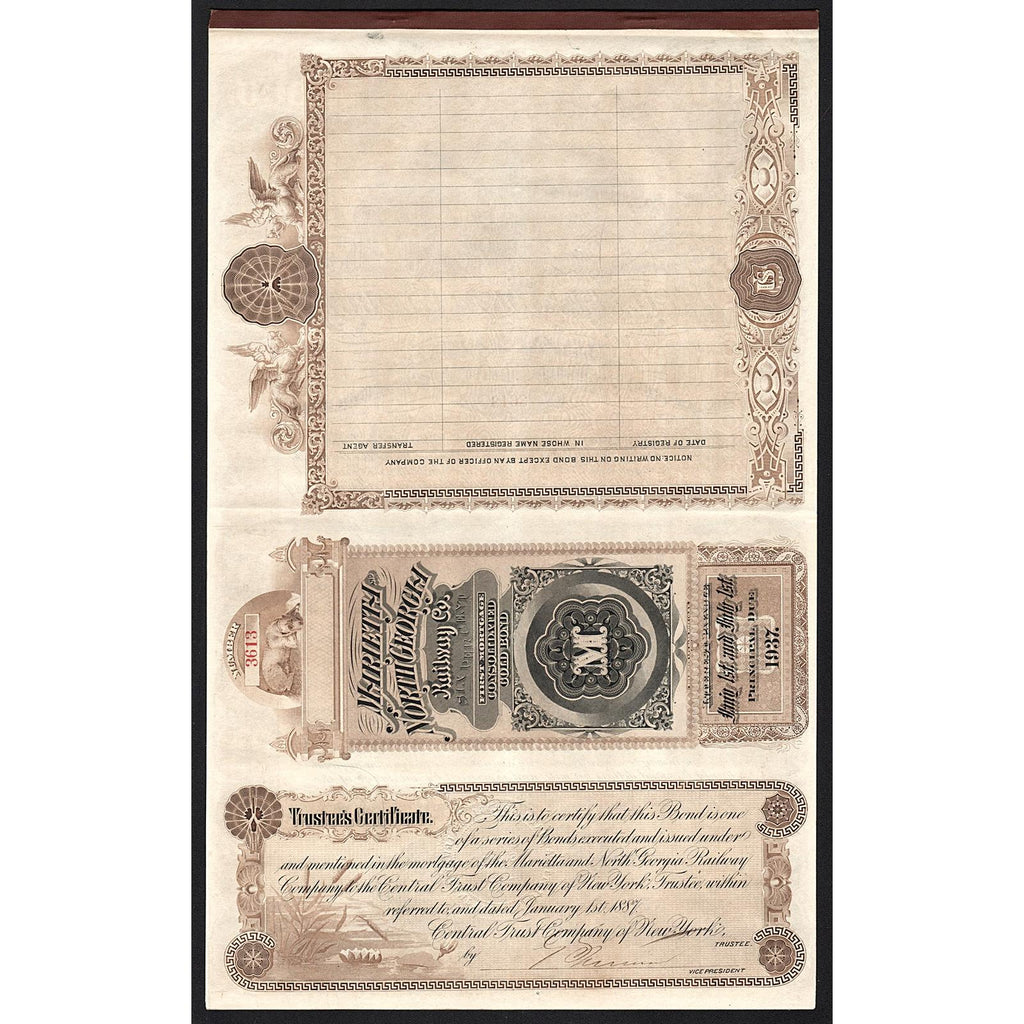 NOTICE: NO WRITING ON THIS BOND EXCEPT BY AN OFFICER OF THE COMPANY
DATE OF REGISTRY
IN WHOSE NAME REGISTERED
TRANSFER AGENT
NUMBER
3613
MARIETTA
NORTH GEORGIA
Railway Co.
SIX PER CENT
FIRST MORTGAGE
CONSOLIDATED
GOLD BOND
M
PRINCIPAL DUE
1937.
Trustee's Certificate.
This is to certify that this Bond is one
of a series of Bonds executed and issued under
and mentioned in the mortgage of the Marietta and North Georgia Railway
Company to the Central Trust Company of New York, Trustee, within
referred to, and dated, January 1st. 1887.
Central Trust Company of New York,
TRUSTEE.
by
VICE PRESIDENT